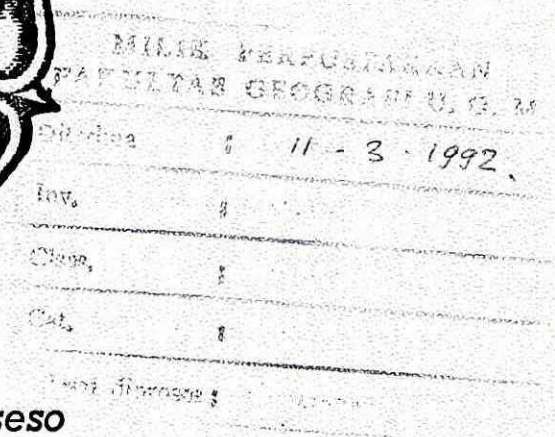 MILIK PERPUSTAKAAN
FAKULTAS GEOGRAFI U. G. M
Diterima : 11 - 3 - 1992.
Inv. :
Class. :
Cat. :
:
seso